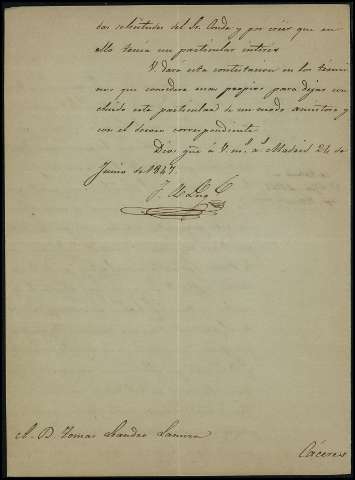 das solicitudes del Sr. Conde y por creer que en
ello tenia un particular interes
V. dará esta contestacion en los términ
nos que considere mas propios para dejar con
cluido este particular de un modo amistoso y
con el decoro correspondiente.
Dios gue. á V. ms. as. Madrid 24 de
Junio de 1847.
Sr. D. Tomas Leandro
Cáceres